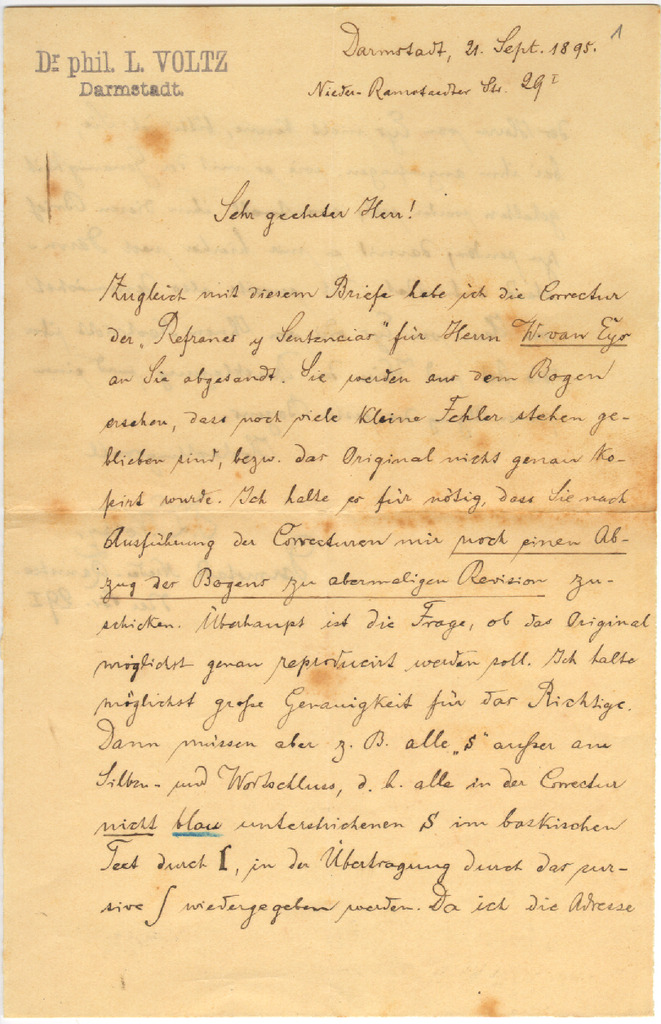 Dr. phil. L. VOLTZ
Darmstadt.
Darmstadt, 21. Sept. 1895.
1
Nieder-Ramstaedter Str. 29 I
Sehr geehrter Herr!
Zugleich mit diesem Briefe habe ich die Correctur
der „Refranes y Sentencias“ für Herrn W. van Eys
an Sie abgesandt. Sie werden aus dem Bogen
ersehen, dass noch viele kleine Fehler stehen ge-
blieben sind, bezw. das Original nicht genau ko-
pirt wurde. Ich halte es für nötig, dass Sie nach
Ausführung der Correcturen mir noch einen Ab-
zug des Bogens zu abermaligen Revision zu-
schicken. Überhaupt ist die Frage, ob das Original
möglichst genau reproducirt werden soll. Ich halte
möglichst große Genauigkeit für das Richtige.
Dann müssen aber z. B. alle „s“ außer am
Silben- und Wortschluss, d. h. alle in der Correctur
nicht blau unterstrichenen s im baskischen
Text durch ſ, in der Übertragung durch das cur-
sive ʃ wiedergegeben werden. Da ich die Adresse